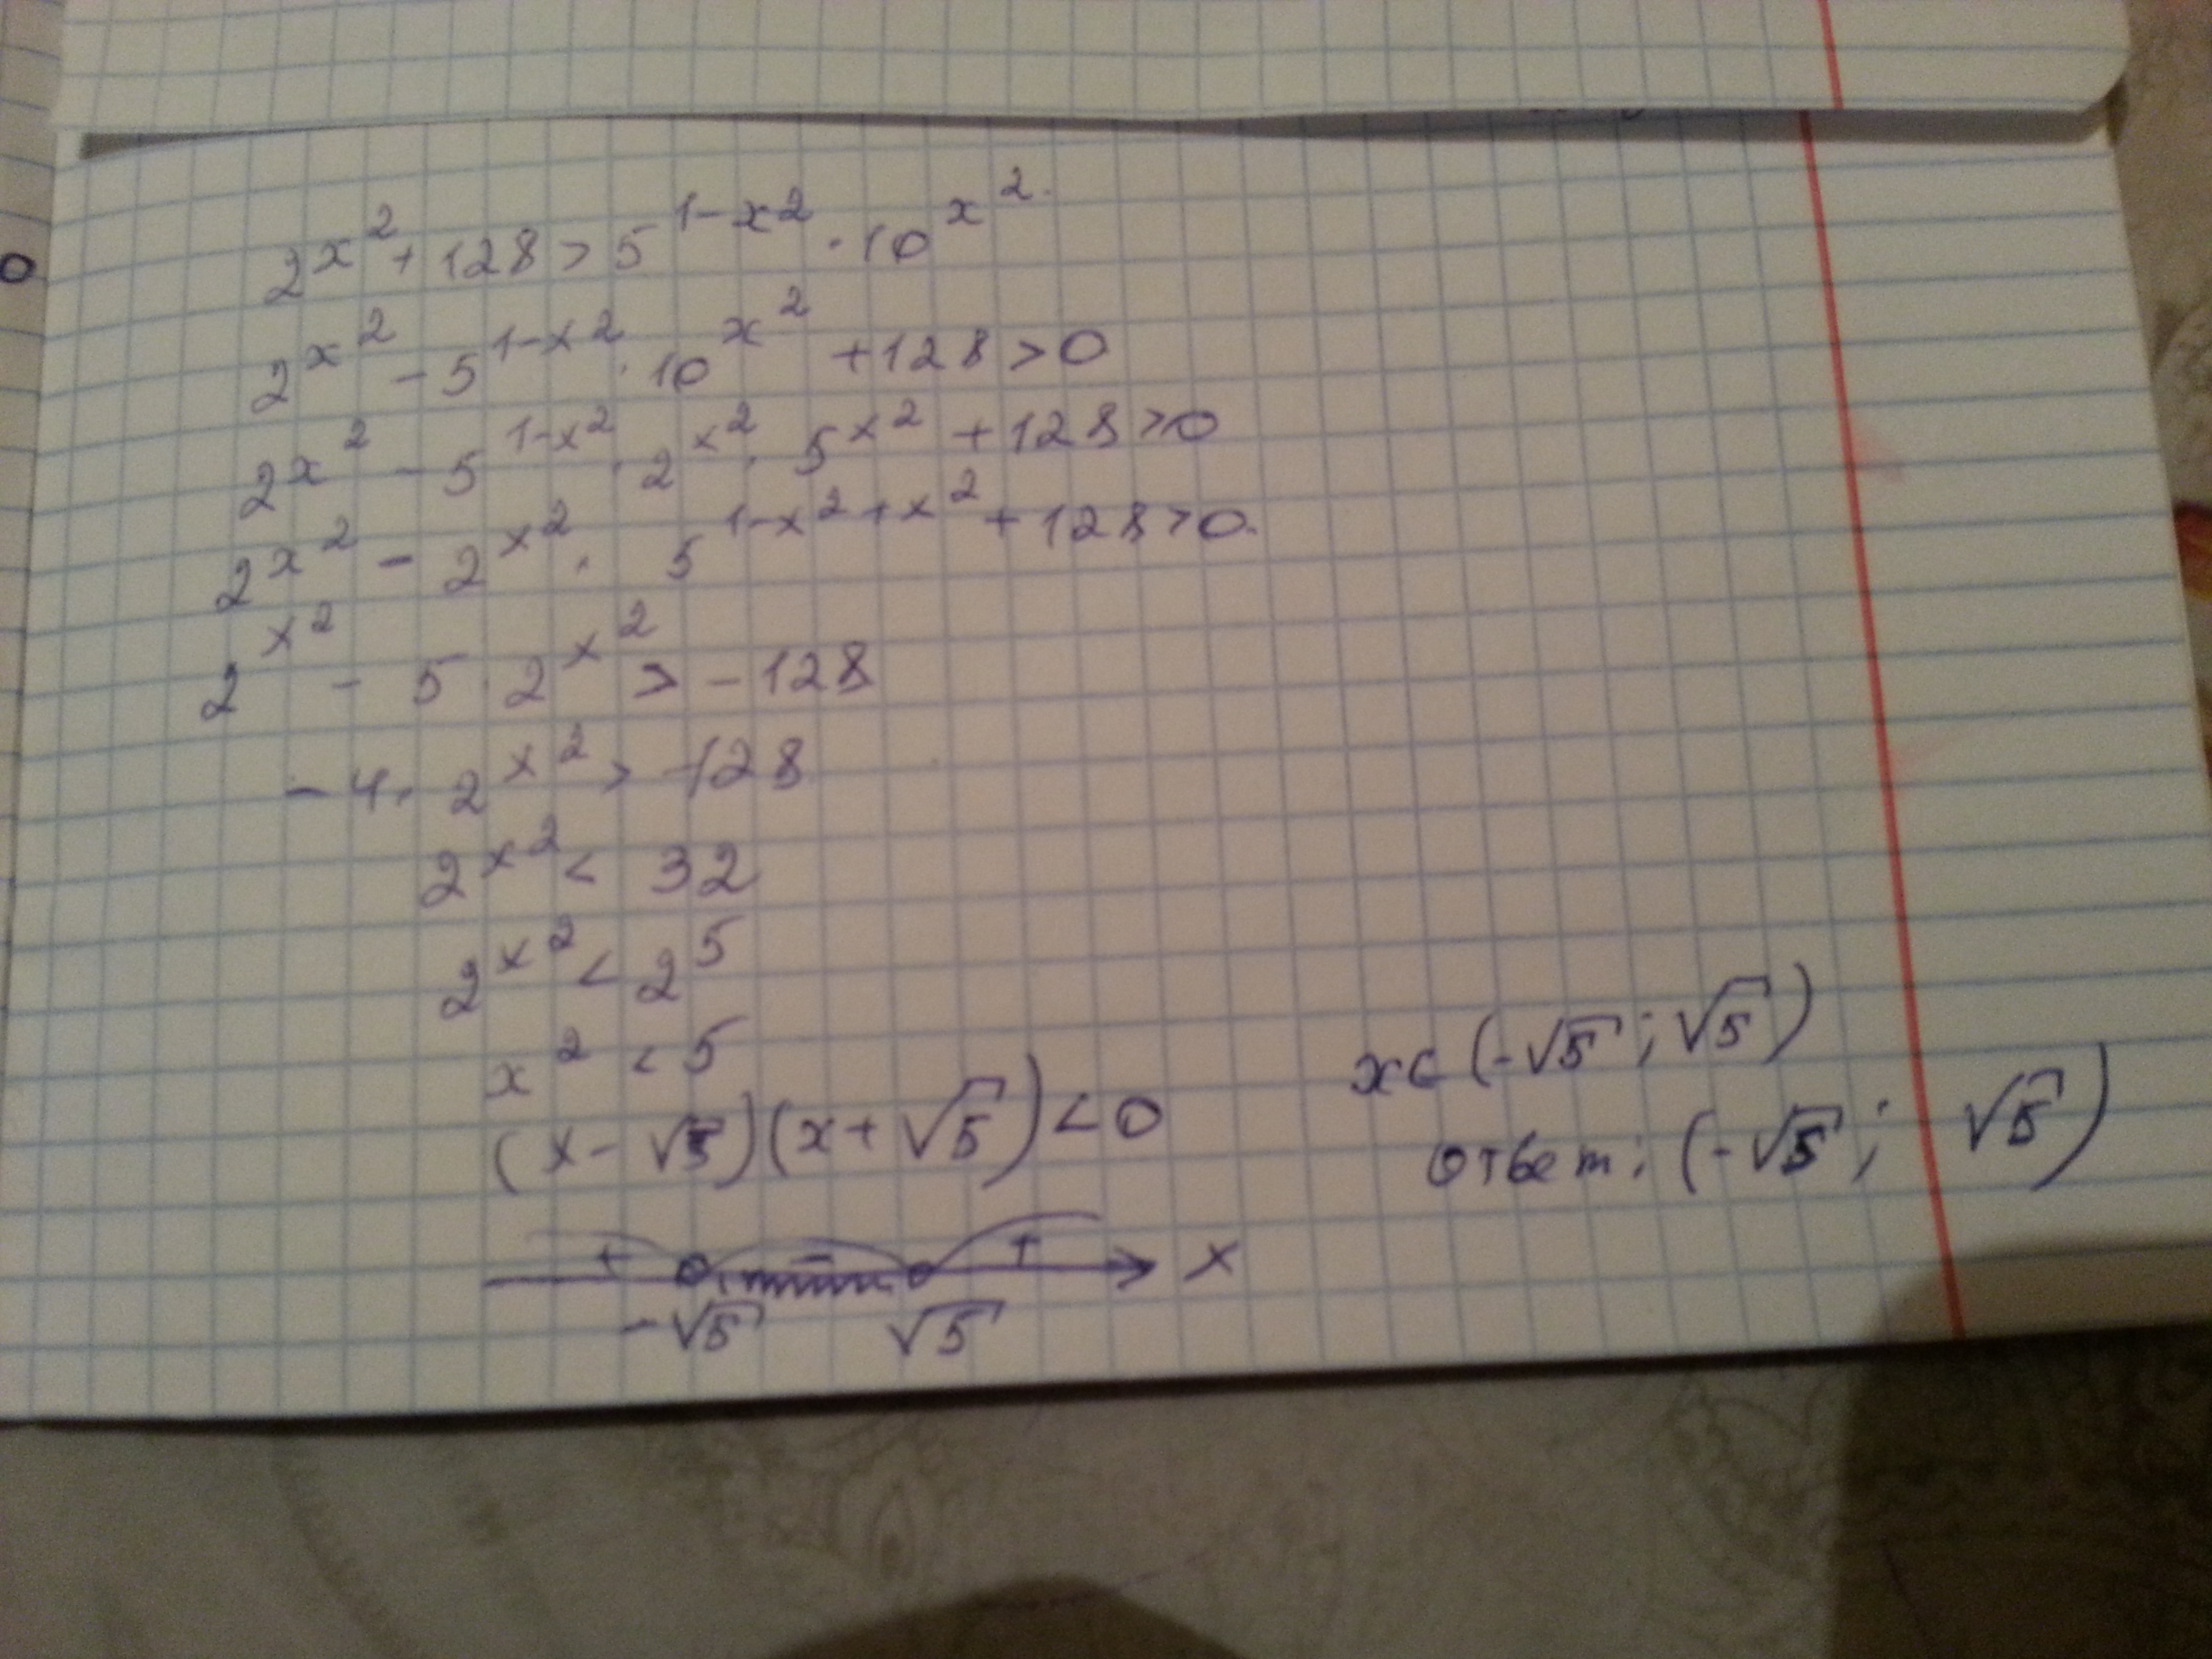 2^{x^2} + 128 > 5^{1-x^2} · 10^{x^2}
2^{x^2} - 5^{1-x^2} · 10^{x^2} + 128 > 0
2^{x^2} - 5^{1-x^2} · 2^{x^2} · 5^{x^2} + 128 > 0
2^{x^2} - 2^{x^2} · 5^{1-x^2+x^2} + 128 > 0
2^{x^2} - 5 · 2^{x^2} > -128
-4 · 2^{x^2} > -128
2^{x^2} < 32
2^{x^2} < 2^5
x^2 < 5
(x - √5)(x + √5) < 0
+ - + x
-√5 √5
x∈(-√5; √5)
ответ: (-√5; √5)